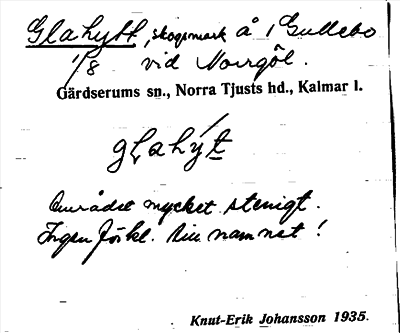 Glahytt, skogsmark å 1 Gullebo
1/8 vid Norrgöl.
Gärdserums sn., Norra Tjusts hd., Kalmar l.
glahýt
Området mycket stenigt.
Ingen förkl. till namnet!
Knut-Erik Johansson 1935.